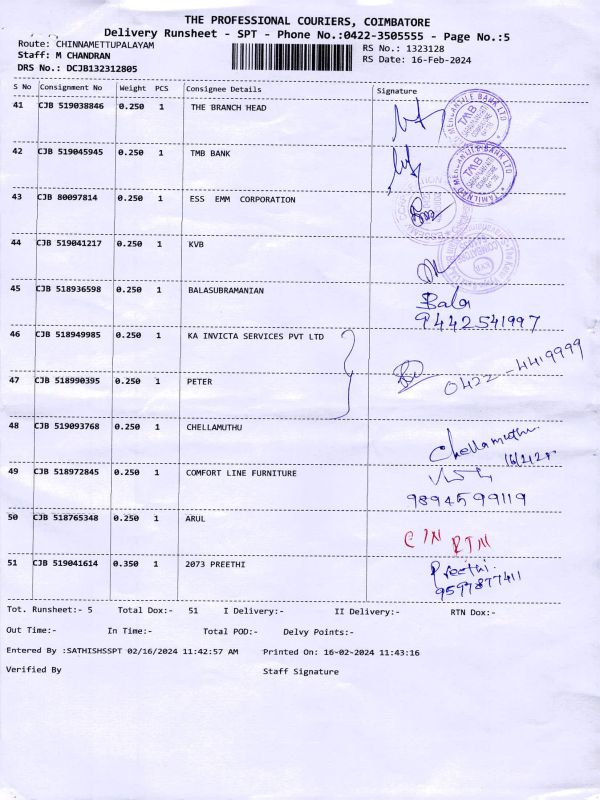 THE PROFESSIONAL COURIERS, COIMBATORE
Delivery Runsheet - SPT - Phone No.:0422-3505555 - Page No.:5
Route: CHINNAMETTUPALAYAM
RS No.: 1323128
Staff: M CHANDRAN
RS Date: 16-Feb-2024
DRS No.: DCJB132312805
S No Consignment No Weight PCS Consignee Details Signature
41 CJB 519038846 0.250 1 THE BRANCH HEAD
42 CJB 519045945 0.250 1 TMB BANK
43 CJB 80097814 0.250 1 ESS EMM CORPORATION
44 CJB 519041217 0.250 1 KVB
45 CJB 518936598 0.250 1 BALASUBRAMANIAN Bala
9442541997
46 CJB 518949985 0.250 1 KA INVICTA SERVICES PVT LTD
0422-4419999
47 CJB 518990395 0.250 1 PETER
48 CJB 519093768 0.250 1 CHELLAMUTHU Chellamuthu
49 CJB 518972845 0.250 1 COMFORT LINE FURNITURE
9894599119
50 CJB 518765348 0.250 1 ARUL
C/N RTN
51 CJB 519041614 0.350 1 2073 PREETHI Preethi.
9597877411
Tot. Runsheet:- 5 Total Dox:- 51 I Delivery:- II Delivery:- RTN Dox:-
Out Time:- In Time:- Total POD:- Delvy Points:-
Entered By :SATHISHSSPT 02/16/2024 11:42:57 AM Printed On: 16-02-2024 11:43:16
Verified By Staff Signature